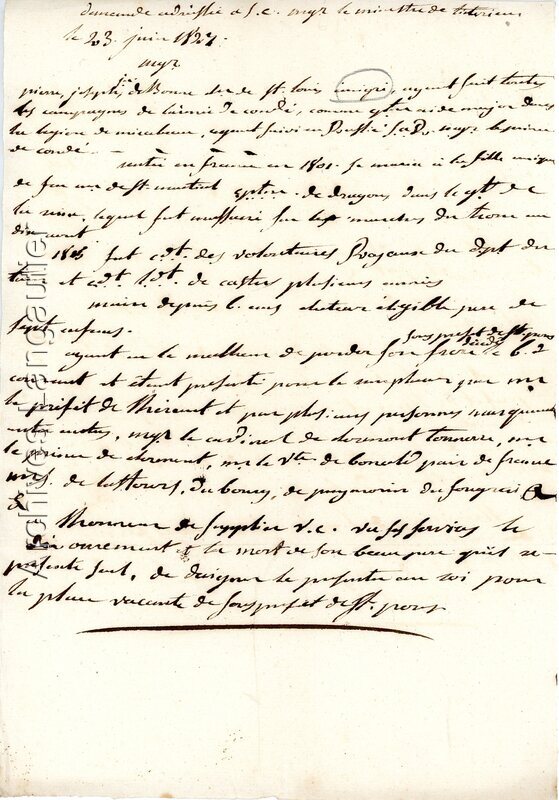 demande adressée a S. e. mgr le ministre de l'interieur
le 23. juin 1827
mgr
pierre, joseph, de Bonne de st. louis emigré, ayant fait toutes
les campagnes de l'armée de condé, comme aide major dans
la legion de mirabeau, ayant suivi en S. a. mgr le prince
de condé.
rentré en france en 1801. se maria a la fille unique
de feu mr de st. martial de dragons dans le de
la reine, lequel fut massacré sur les marches du trone
1815 fut cdt. des volontaires royaux du dept du
tarn et cdt. de castres plusieurs années
maire depuis 6. ans electeur eligible pere de
sept enfans.
ayant eu le malheur de perdre son frere sous prefet de st. pons décédé le 6. du
courant et etant presenté pour le remplacer par mr
le prefet de l'hérault et par plusieurs personnes marquantes
entre autres, mgr le cardinal de clermont tonnerre, mr
le prince de clermont, mr le vte. de bonald pair de france
mrs. de du bourg, de puymaurin
&
l'honneur de supplier v. e. vu ses services le
devouement et la mort de son beau pere qu'il re-
présente seul, de daigner le presenter au roi pour
la place vacante de sous prefet de st. pons